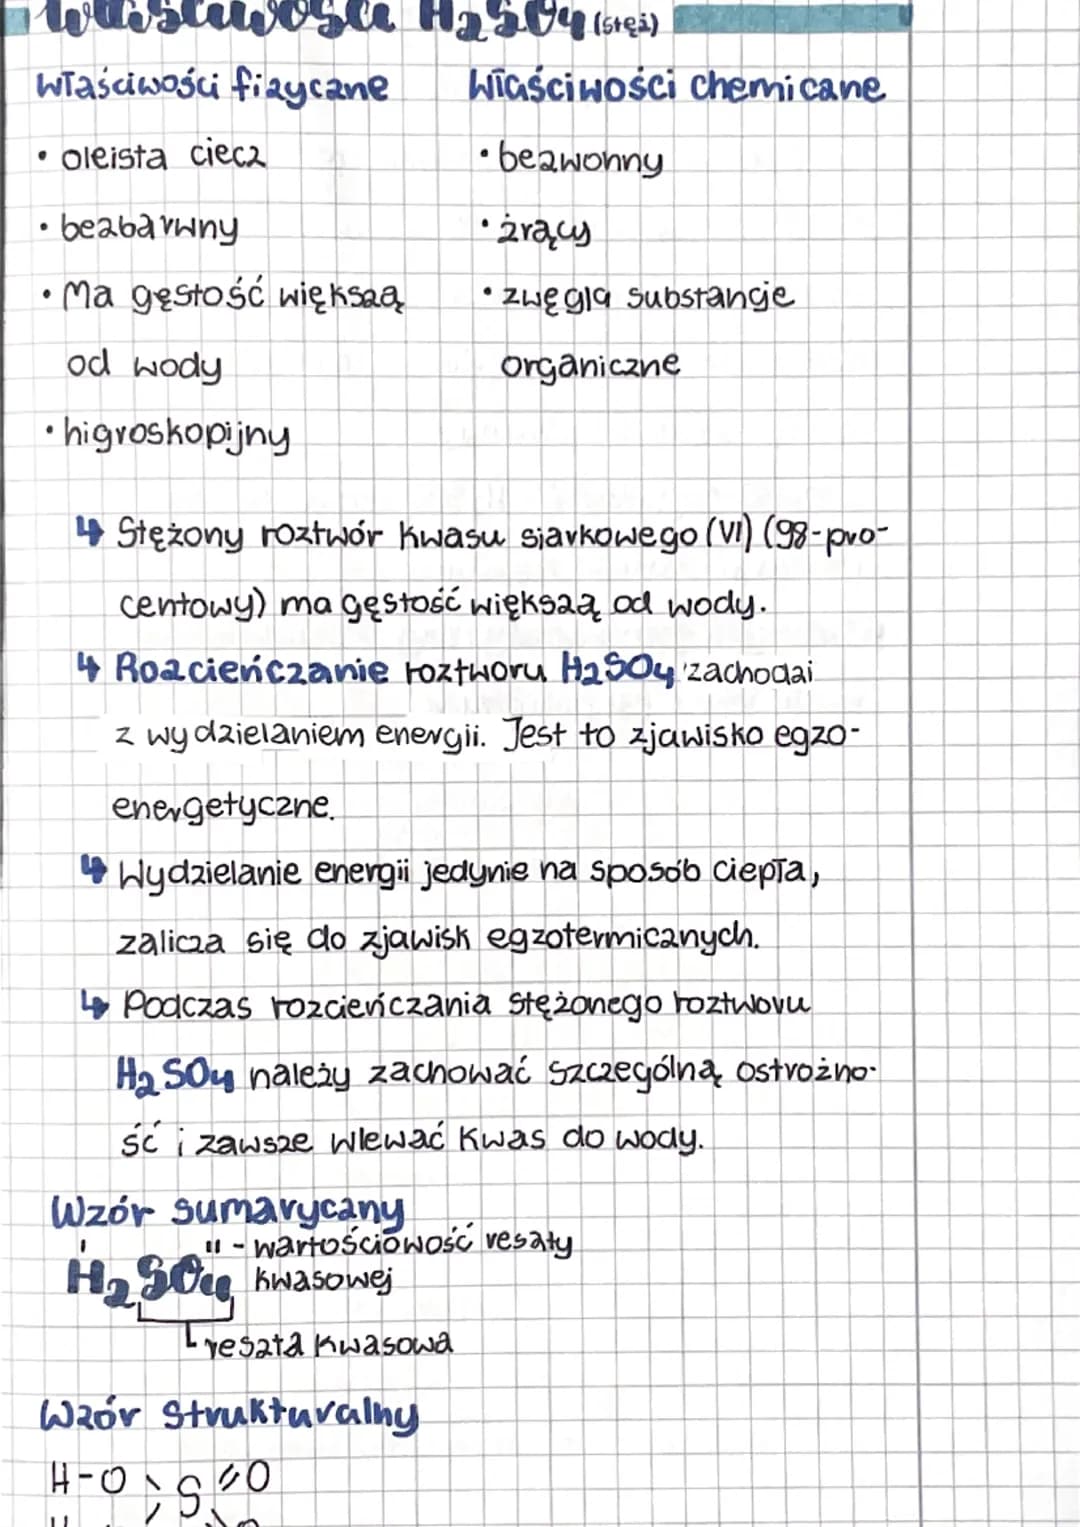 Właściwości H2SO4 (stęż)
właściwości fizyczne
Właściwości chemiczne
• oleista ciecz
• bezbarwny
• Ma gęstość większą
od wody
• higroskopijny
• bezwonny
• żrący
• zwęgla substancje
organiczne
↳ Stężony roztwór kwasu siarkowego (VI) (98-pro-
centowy) ma gęstość większą od wody.
↳ Rozcieńczanie roztworu H2SO4 zachodzi
z wydzielaniem energii. Jest to zjawisko egzo-
energetyczne.
↳ Wydzielanie energii jedynie na sposób ciepła,
zalicza się do zjawisk egzotermicznych.
↳ Podczas rozcieńczania stężonego roztworu
H2SO4 należy zachować szczególną ostrożno-
ść i zawsze wlewać kwas do wody.
Wzór sumaryczny
I II - wartościowość reszty
H2SO4 kwasowej
reszta kwasowa
Wzór strukturalny
H-O S=O